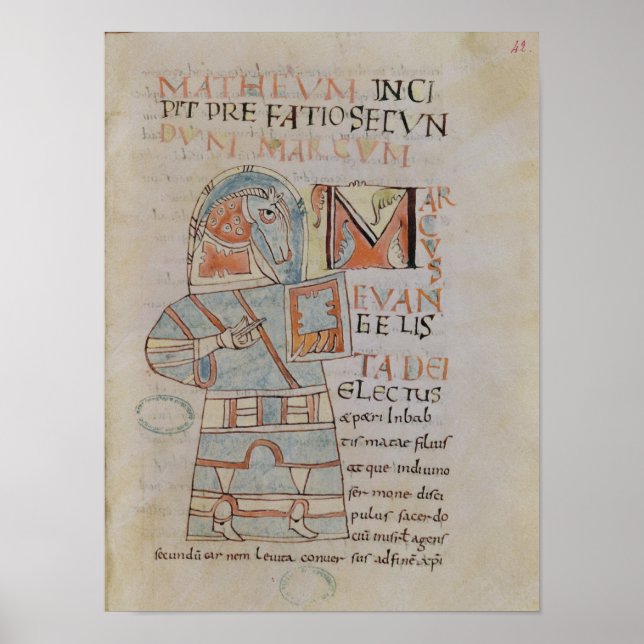 42.
MATHEUM INCI
PIT PREFATIO SECUN
DUM MARCUM
MARCUS
EUAN
GELIS
TA DEI
ELECTUS
& petri In bab
tis mate filius
at que Indiuino
ser mone disci
pulus sacerdo
tiū Inisrł agens
secundū car nem leuita conuer sus ad finē &